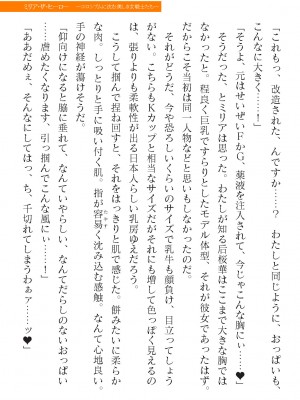 「これもっ、改造された、んですか……？　わたしと同じように、おっぱいも、
こんなに大きく……！」
「そうよ、元はせいぜいFかG、薬液を注入されて、今じゃこんな胸にぃ……♥」
そうだった、とミリアは思った。わたしが知る后桜華はここまで大きな胸では
なかったと。程良く巨乳ですらりとしたモデル体型、それが彼女であったはず。
だからこそ当初は同一人物などと思いもしなかったのだ。
それがどうだ、今や恐ろしいくらいのサイズだ。乳牛も顔負け、目立ってしょう
がない。こちらもKカップと相当なサイズだがそれにも増して色っぽく見えるの
は、張りよりも柔軟性が出る日本人らしい乳房ゆえだろう。
こうして掴んで捏ね回すと、それをはっきりと肌で感じた。餅みたいに柔らか
な肉、しっとりと手に吸い付く肌。指が容易く沈み込む感触。なんて心地良い。
手の神経が蕩けそうだ。
「仰向けになると脇に垂れて、なんていやらしい、なんてだらしのないおっぱい
……虐めたくなります、引っ掴んでこんな風にぃ……！」
「ああだめぇ、そんなにしてはっ、ち、千切れてしまうわぁァ……ッ♥」